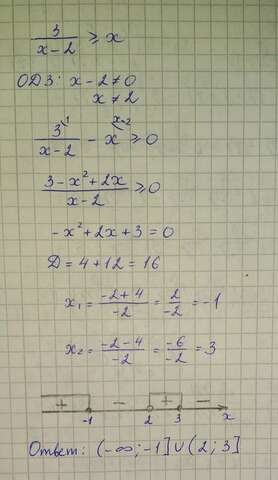 3/(x-2) ≥ x
ОДЗ: x - 2 ≠ 0
x ≠ 2
3^1/(x-2) - x^(x-2) ≥ 0
(3 - x² + 2x)/(x-2) ≥ 0
-x² + 2x + 3 = 0
D = 4 + 12 = 16
x₁ = (-2+4)/(-2) = 2/(-2) = -1
x₂ = (-2-4)/(-2) = (-6)/(-2) = 3
+ - + -
-1 2 3 x
Ответ: (-∞; -1] ∪ (2; 3]